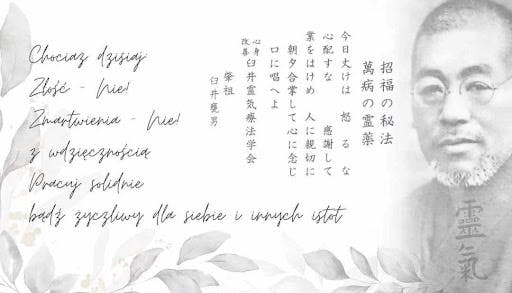 Chociaż dzisiaj:
Złość - Nie!
Zmartwienia - Nie!
z wdzięcznością
Pracuj solidnie
bądź życzliwy dla siebie i innych istot
招福の秘法
萬病の霊薬
今日丈けは 怒るな
心配すな 感謝して
業をはけめ 人に親切に
朝夕合掌して心に念じ
口に唱へよ
心身改善 臼井霊気療法学会
肇祖
臼井甕男
靈氣